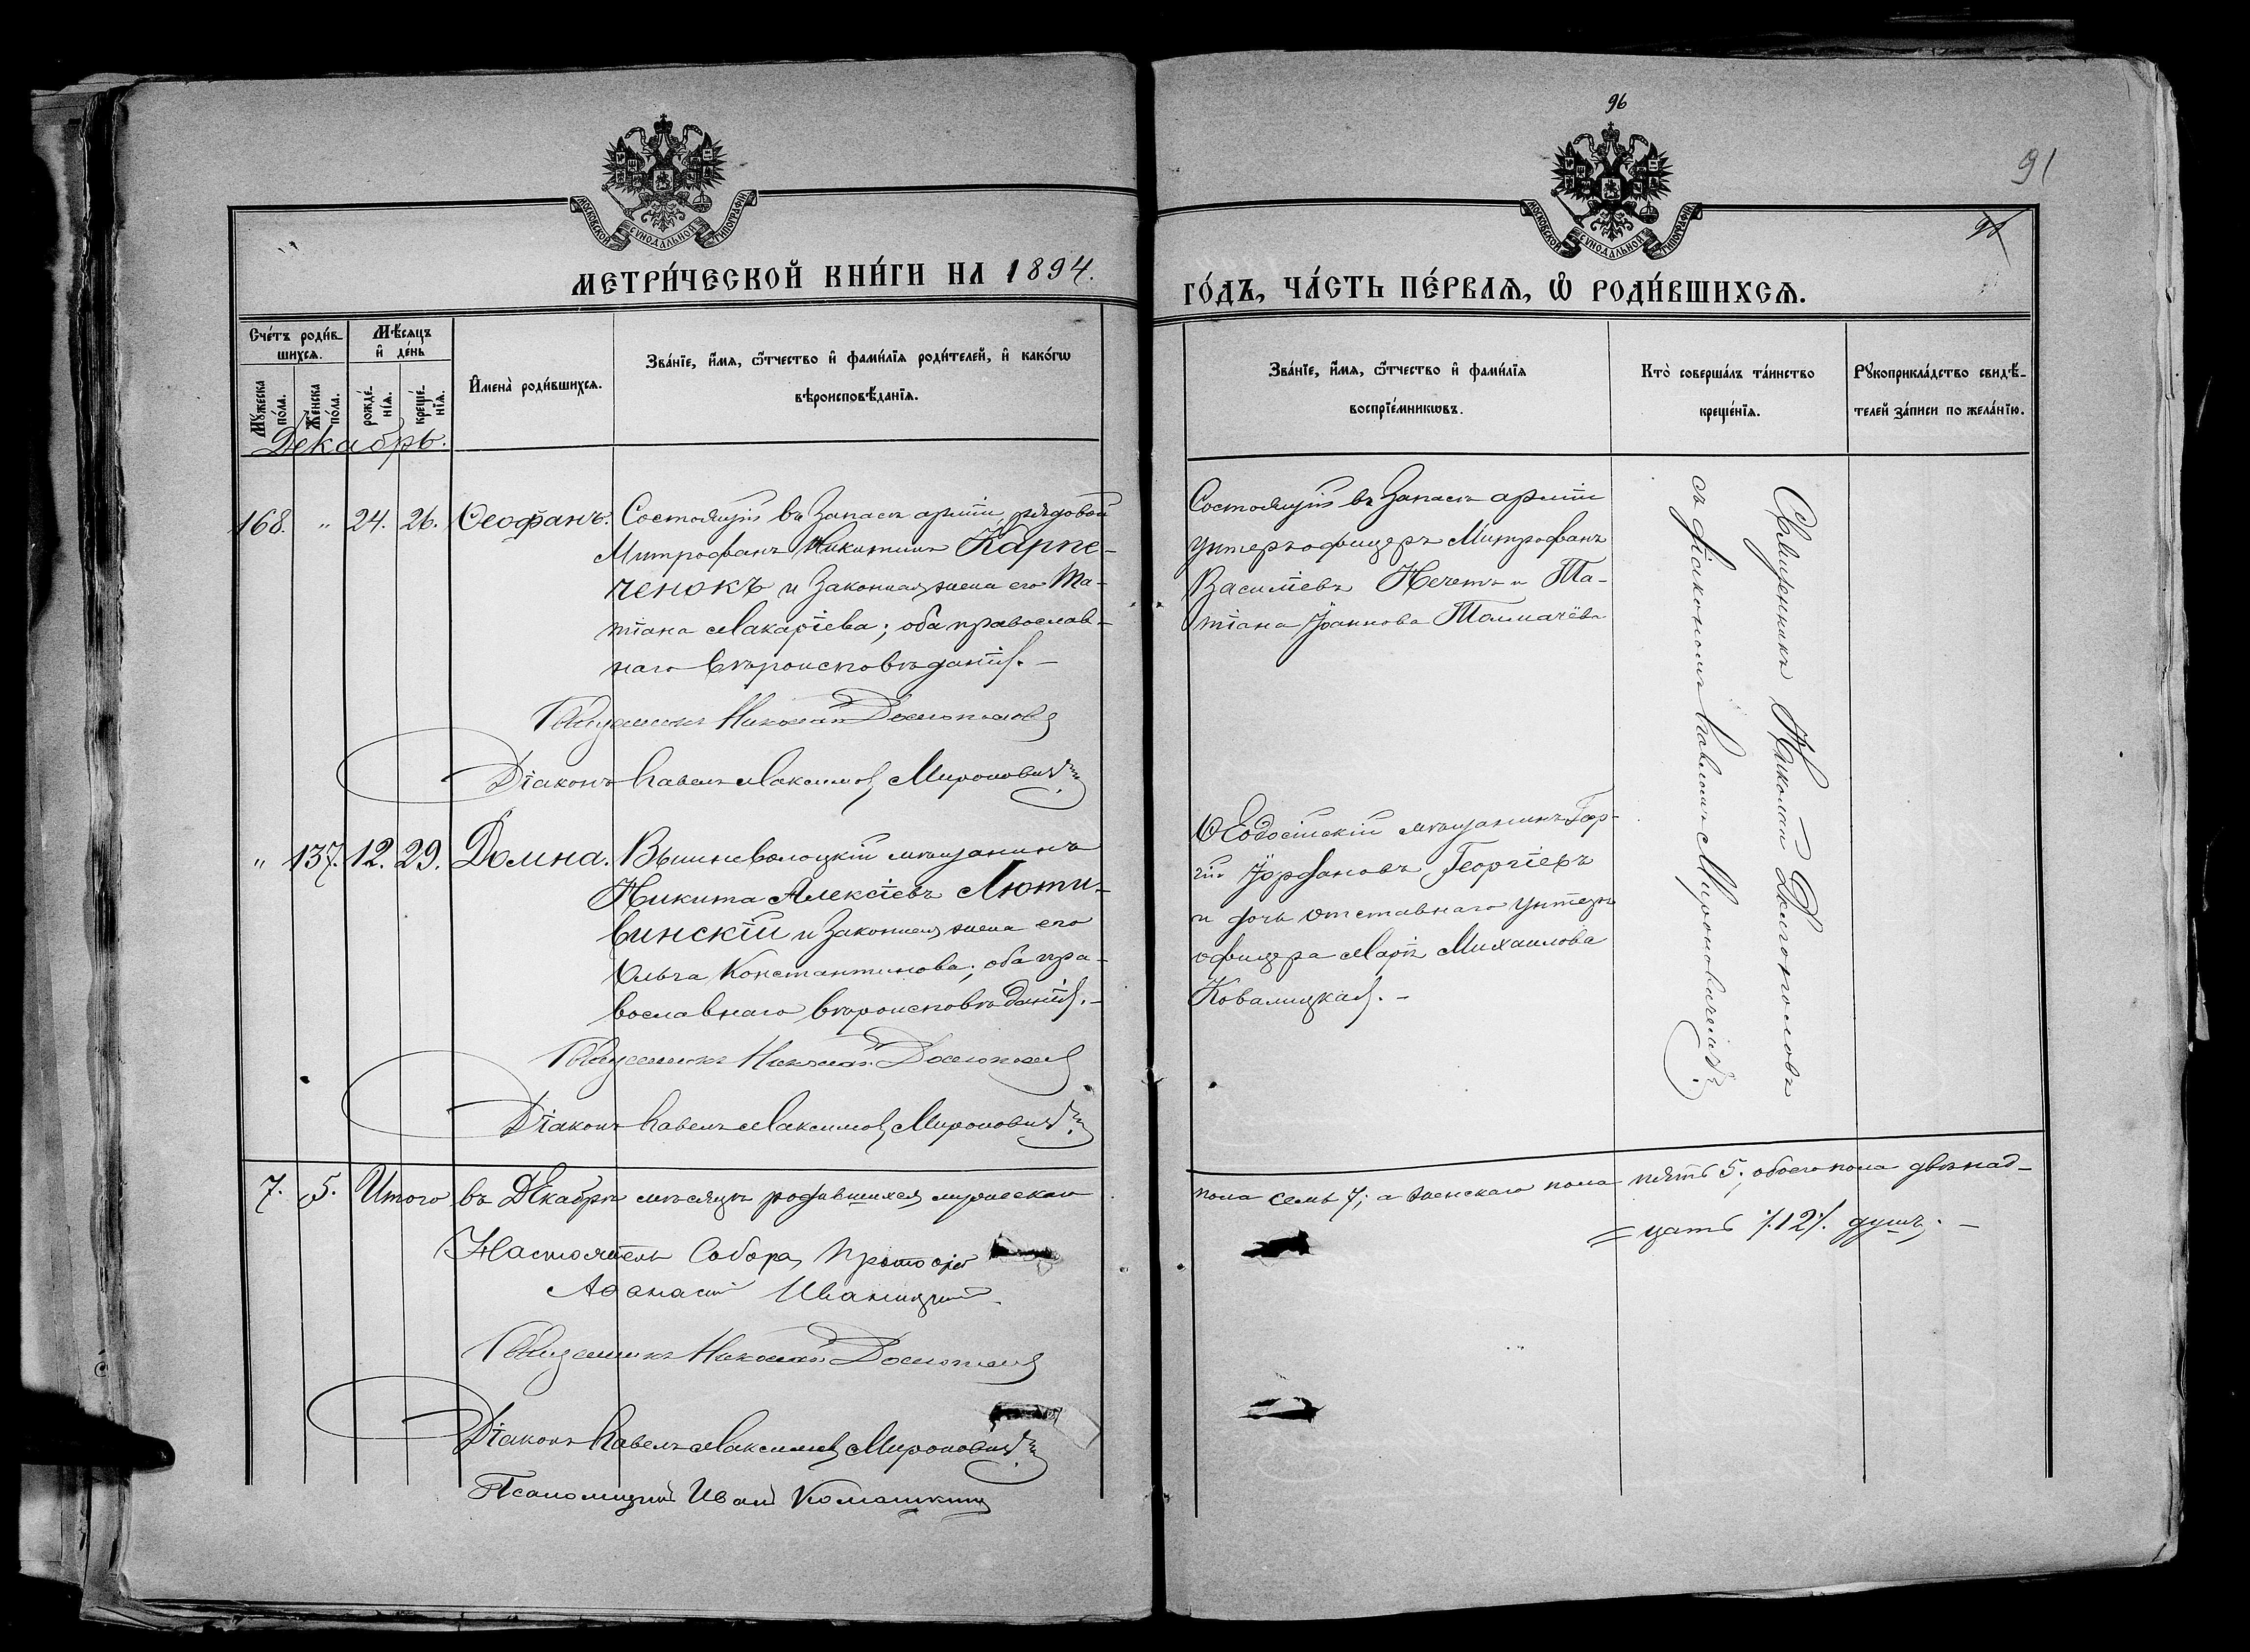 96
91
МОСКОВСКОЙ СУНОДАЛЬНОЙ ТИПОГРАФІИ
МОСКОВСКОЙ СУНОДАЛЬНОЙ ТИПОГРАФІИ
МЕТРИ́ЧЕСКОЙ КНИ́ГИ НА 1894.
ГО́ДЪ, ЧА́СТЬ ПЕ́РВАѦ, Ѡ РОДИ́ВШИХСѦ.
Сче́тъ роди́в-
шихсѧ.
Мѣ́сѧцъ
и҆ де́нь
Мꙋ́жеска по́ла.
Же́нска по́ла.
рожде́-нїѧ.
креще́-нїѧ.
И҆мена̀ роди́вшихсѧ.
Зва́нїе, и҆́мѧ, ѻ҆́тчество и҆ фами́лїѧ роди́телей, и҆ како́гѡ
вѣроисповѣ́данїѧ.
Зва́нїе, и҆́мѧ, ѻ҆́тчество и҆ фами́лїѧ
воспрїе́мникѡвъ.
Кто̀ соверша́лъ та́инство
креще́нїѧ.
Рꙋкоприкла́дство свидѣ́-
телей за́писи по жела́нїю.
Декабрь.
168. " 24. 26. Ѳеофанъ. Состоящій въ запасѣ арміи, рядовой
Митрофанъ Никитинъ Карпе-
ченокъ и законная жена его Та-
тіана Макаріева; оба православ-
наго вѣроисповѣданія. —
Священникъ Николай Долгополовъ
Діаконъ Павелъ Максимовъ Мироновичъ.
Состоящій въ запасѣ арміи
унтеръ-офицеръ Митрофанъ
Василіевъ Нечетъ и Та-
тіана Іоаннова Толмачёва
Священникъ Николай Долгополовъ
съ діакономъ Павломъ Мироновичемъ.
" 137. 12. 29. Домна. Вышневолоцкій мѣщанинъ
Никита Алексіевъ Люти-
винскій и законная жена его
Ольга Константинова; оба пра-
вославнаго вѣроисповѣданія. —
Священникъ Николай Долгополовъ
Діаконъ Павелъ Максимовъ Мироновичъ.
Ѳеодосійскій мѣщанинъ Геор-
гій Іорданов Георгіевъ
и дочь отставнаго унтеръ
офицера Марія Михаилова
Ковалицкая. —
7. 5. Итого въ Декабрѣ мѣсяцѣ родившихся мужескаго
пола семь 7; а женскаго пола пять 5; обоего пола двѣнад-
= цать /.12/. душъ. —
Настоятель Собора, Протоіер
Афанасій Иваницкій
Священникъ Николай Долгополовъ
Діаконъ Павелъ Максимовъ Мироновичъ.
Псаломщикъ Иванъ